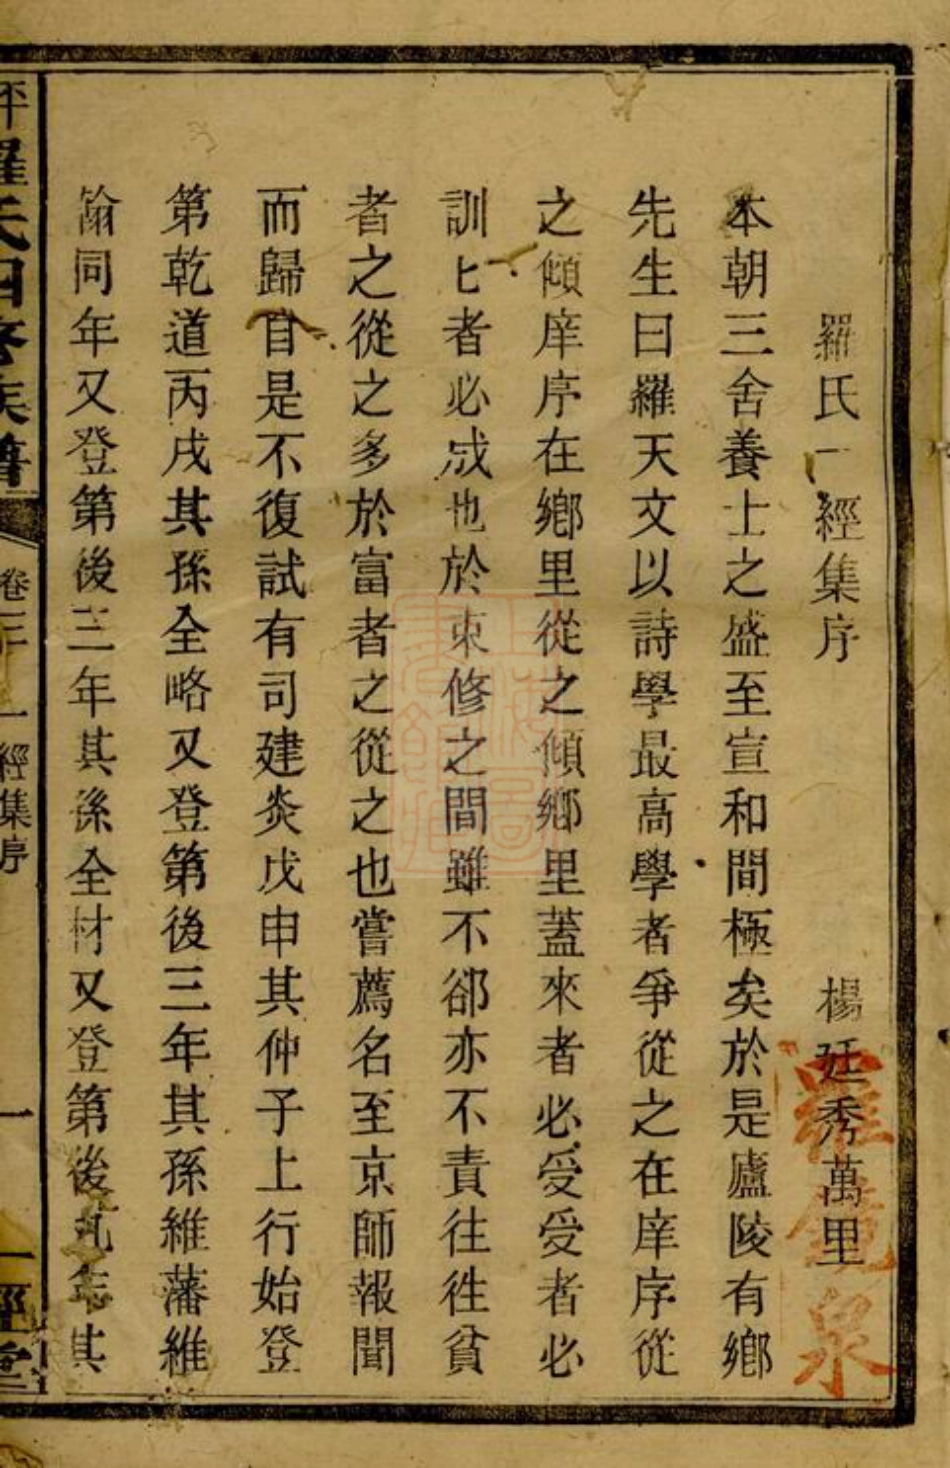 羅氏一經集序
楊廷秀萬里
本朝三舍養士之盛至宣和間極矣於是廬陵有鄉
先生曰羅天文以詩學最高學者爭從之在庠序從
之傾庠序在鄉里從之傾鄉里蓋來者必受受者必
訓匕者必成也於束修之間雖不卻亦不責往往貧
者之從之多於富者之從之也嘗薦名至京師報聞
而歸自是不復試有司建炎戊申其仲子上行始登
第乾道丙戌其孫全略又登第後三年其孫維藩維
翰同年又登第後三年其孫全材又登第後九年其
羅氏四修族譜
卷二
一經集序
一
一經堂